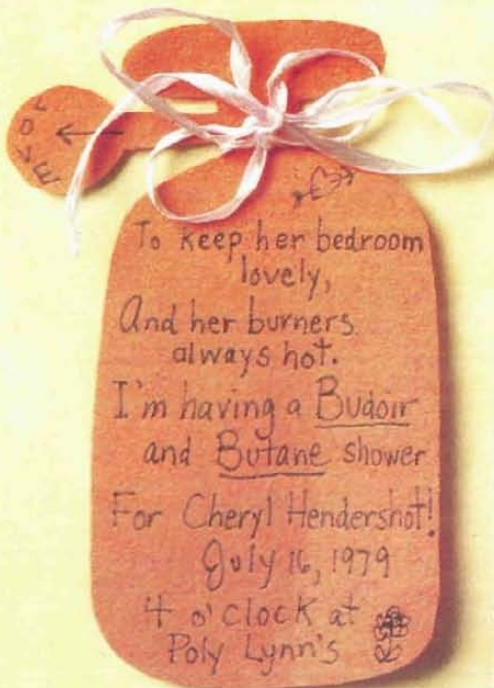 LOVE
To keep her bedroom
lovely,
And her burners
always hot.
I'm having a Budoir
and Butane shower
For Cheryl Hendershot!
July 16, 1979
4 o'clock at
Poly Lynn's